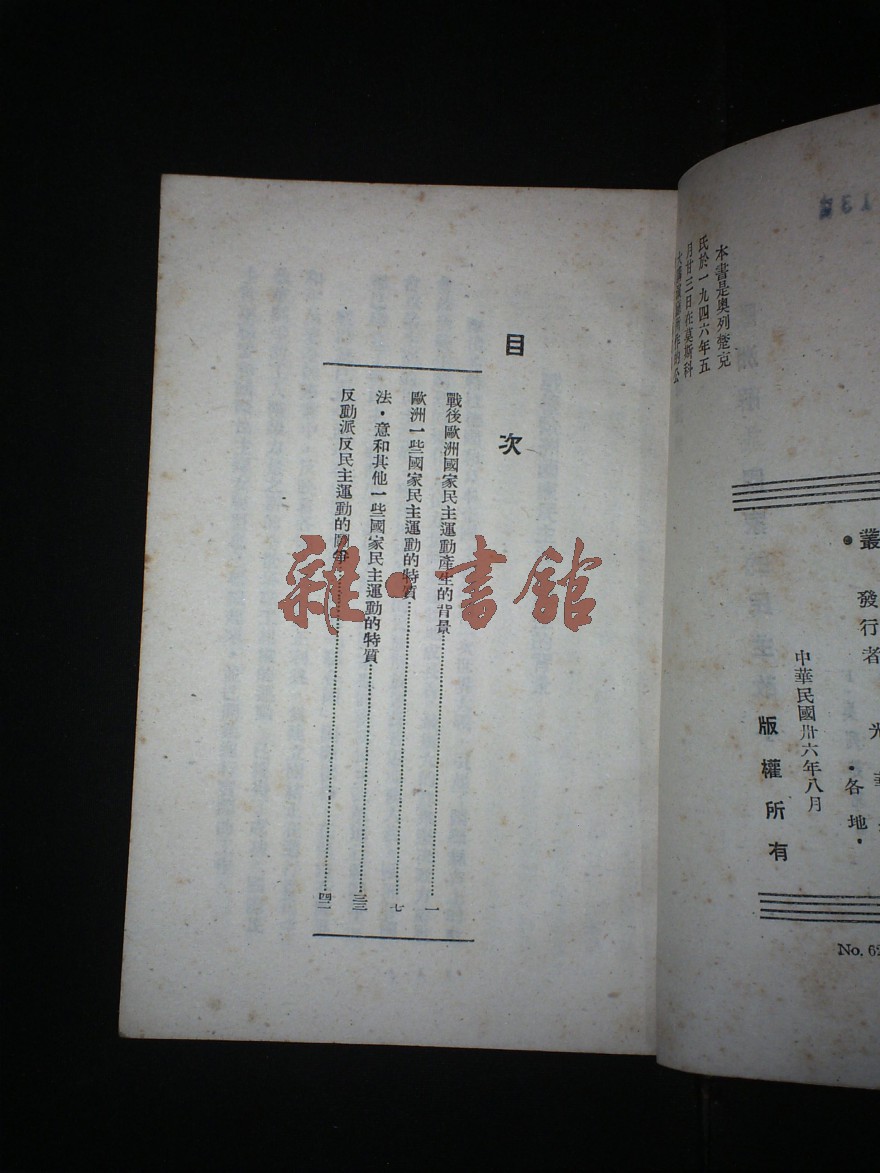 本書是奧列楚克
氏於一九四六年五
月廿三日在莫斯科
叢
發行者 光華
·各地·
中華民國卅六年八月
版權所有
No. 62
目次
戰後歐洲國家民主運動產生的背景 一
歐洲一些國家民主運動的特質 七
法·意和其他一些國家民主運動的特質
反動派反民主運動的鬪爭
雜·書館